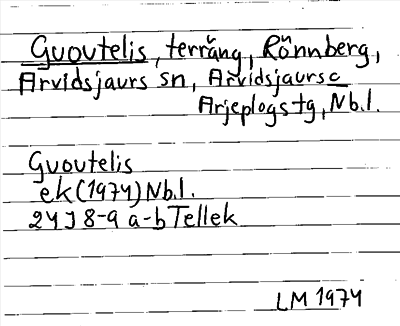 Guovtelis, terräng, Rönnberg,
Arvidsjaurs sn, Arvidsjaurs
Arjeplogs tg, Nb.l.
Guovtelis
ek (1974) Nb.l.
24J 8-9 a-b Tellek
LM 1974